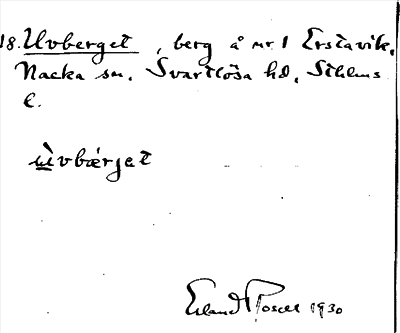 18. Uvberget, berg å nr 1 Erstavik,
Nacka sn. Svartlösa hd, Sthlms
l.
ùvbærjet
Erland Rosell 1930